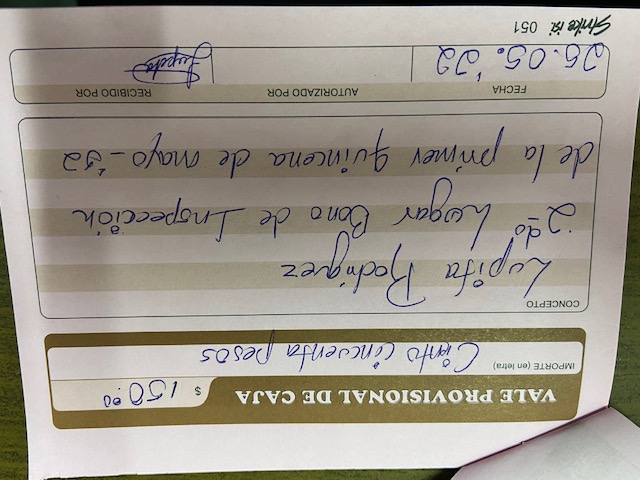 VALE PROVISIONAL DE CAJA
$ 150.00
IMPORTE (en letra)
Ciento cincuenta pesos
CONCEPTO
Lupita Rodríguez
2do lugar Bono de Inspección
de la primer quincena de mayo-'22
FECHA
AUTORIZADO POR
RECIBIDO POR
25.05.'22
Lupita
Strike is. 051